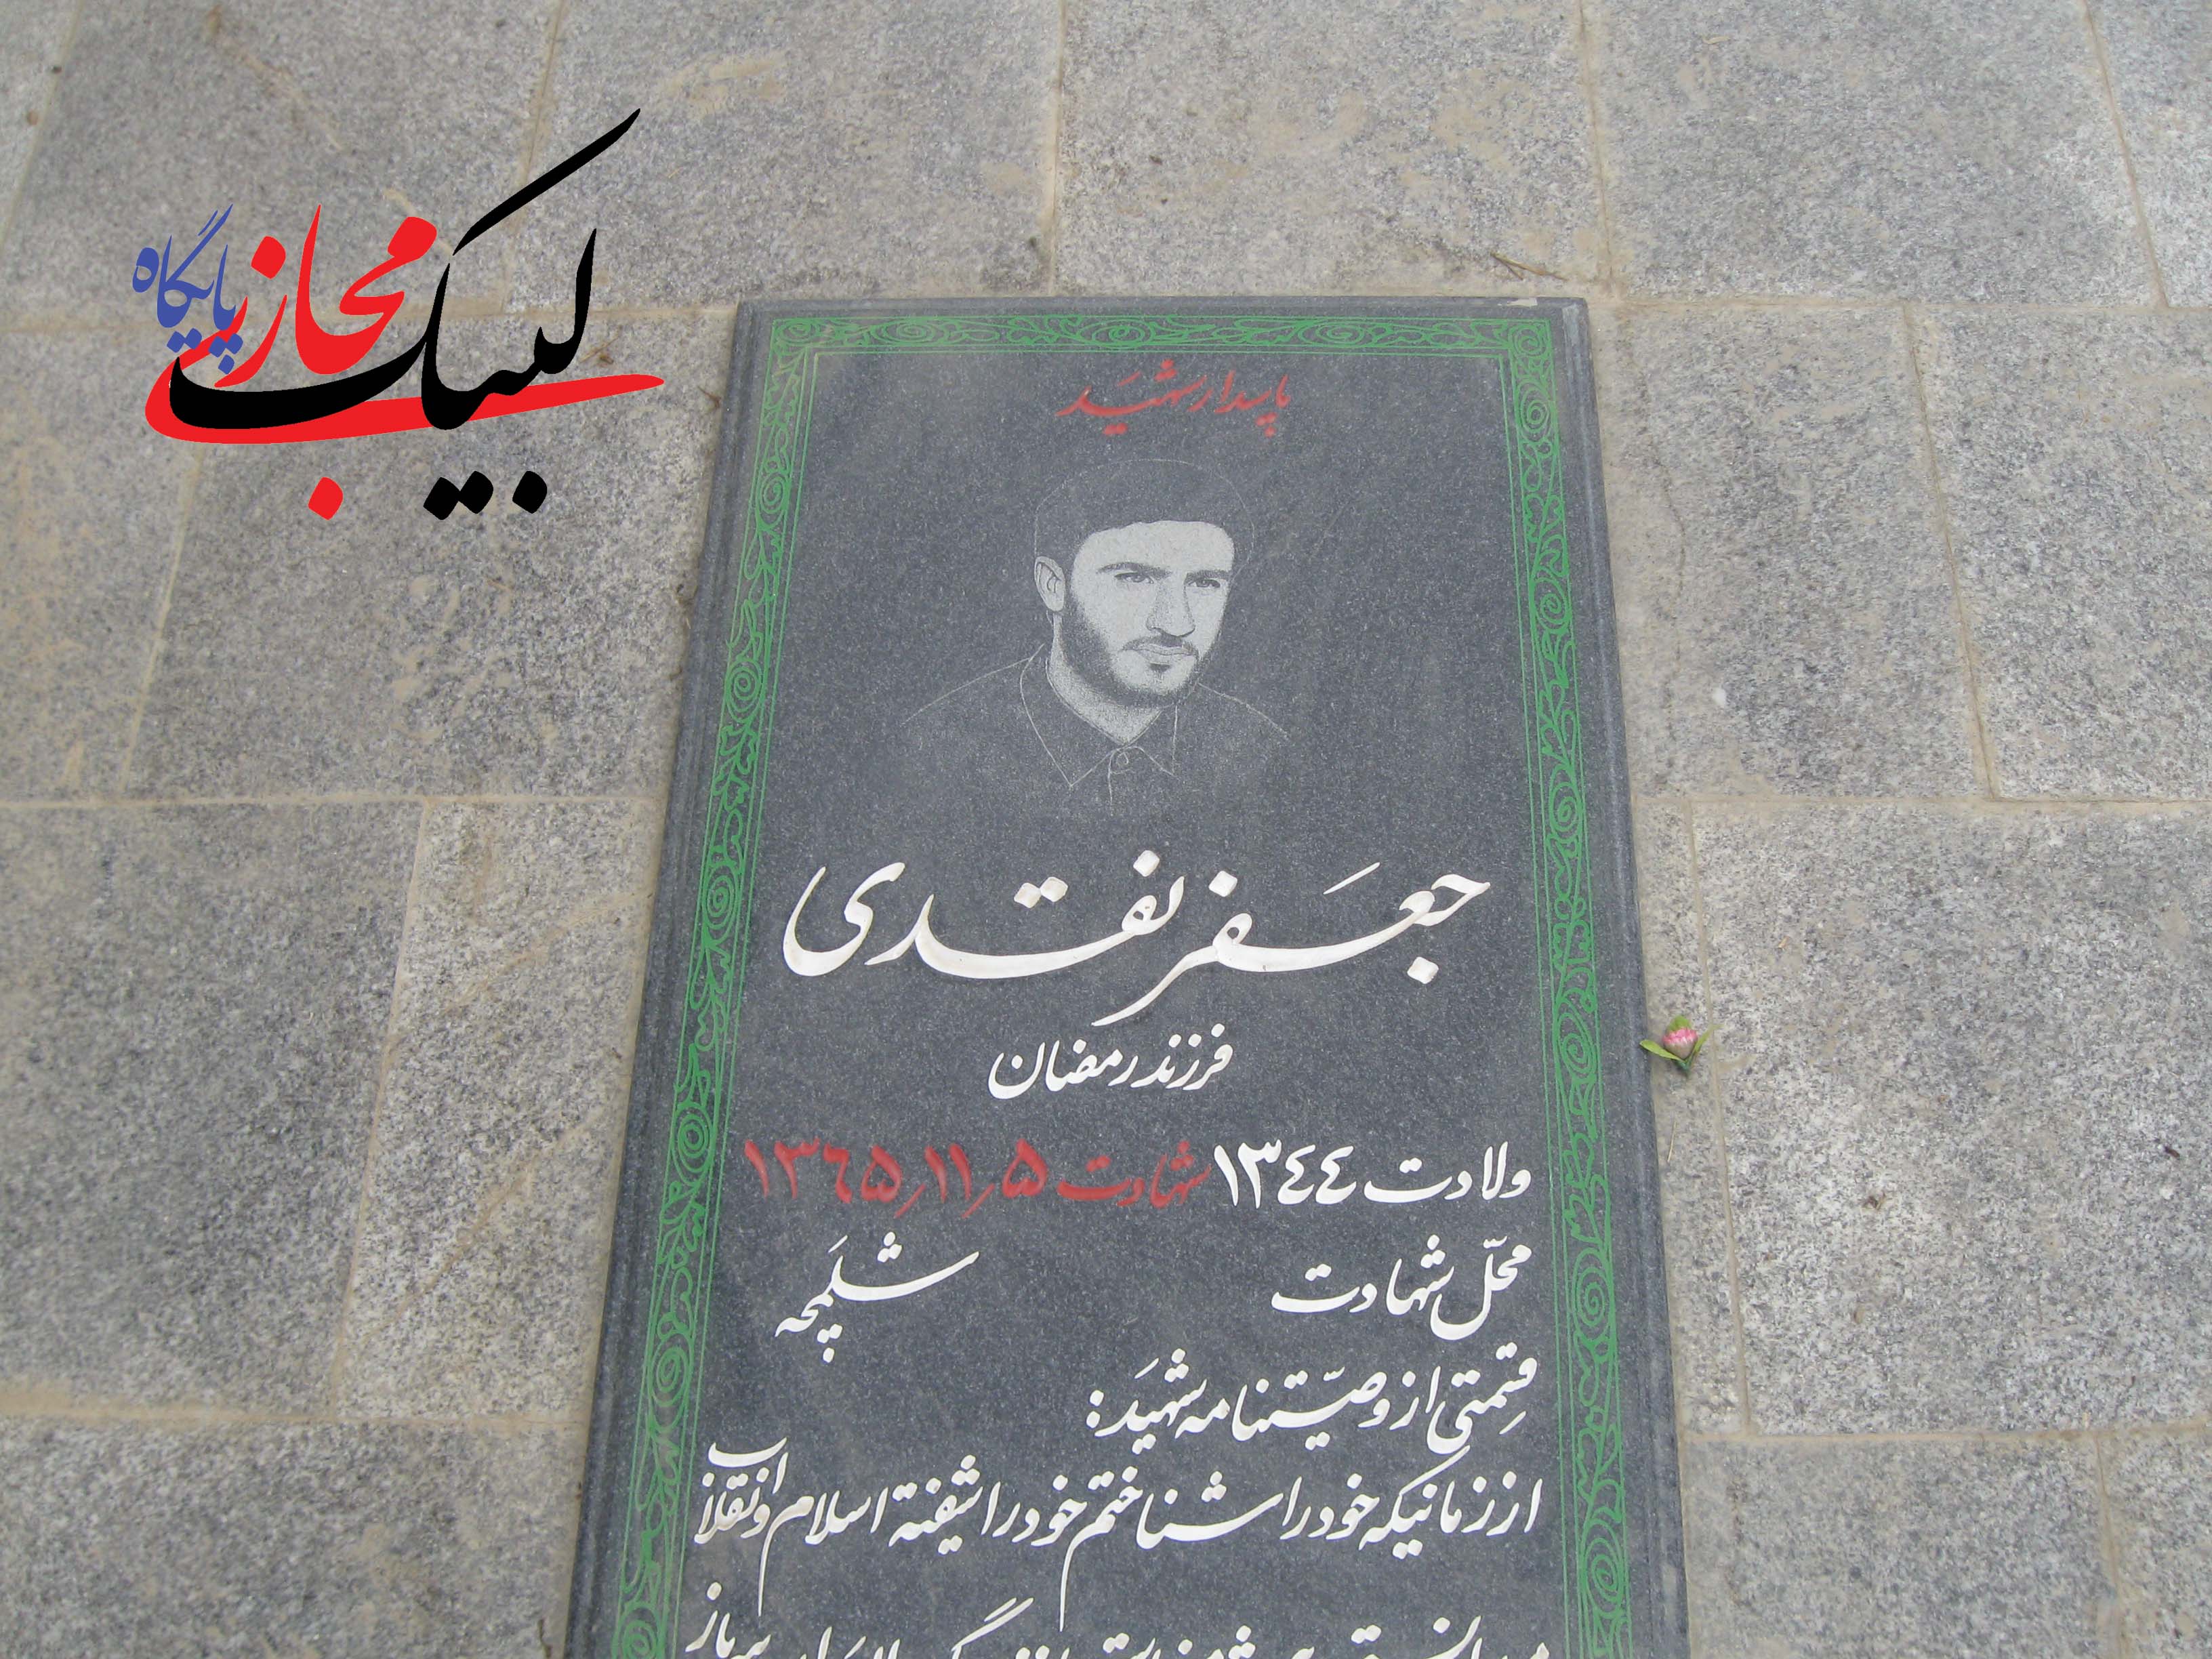 پایگاه مجازی لبیک
پاسدار شهید
جعفر نقدی
فرزند رمضان
ولادت ۱۳۴۴ شهادت ۵/۱۱/۱۳۶۵
محل شهادت شلمچه
قسمتی از وصیتنامه شهید:
از زمانیکه خود را شناختم خود را شیفته اسلام و انقلاب